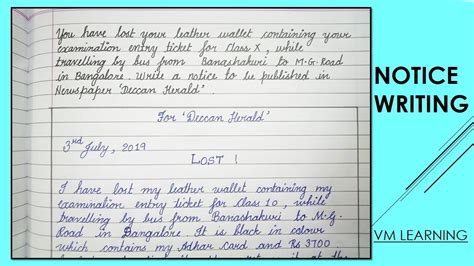 You have lost your leather wallet containing your
examination entry ticket for Class X, while
travelling by bus from Banashakuri to M.G.Road
in Bangalore. Write a notice to be published in
Newspaper 'Deccan Herald'.
For 'Deccan Herald'
3rd July, 2019
LOST !
I have lost my leather wallet containing my
examination entry ticket for Class 10, while
travelling by bus from Banashakuri to M.G.
Road in Bangalore. It is black in colour
which contains my Adhar Card and Rs 3700
NOTICE
WRITING
VM LEARNING